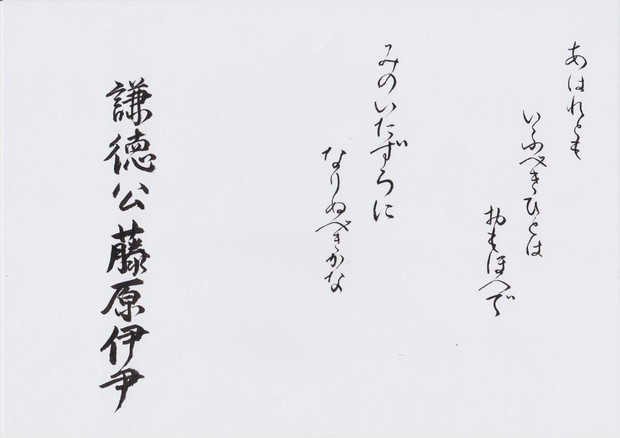 あはれとも
いふべきひとは
おもほへで
みのいたずらに
なりぬべきかな
謙徳公藤原伊尹